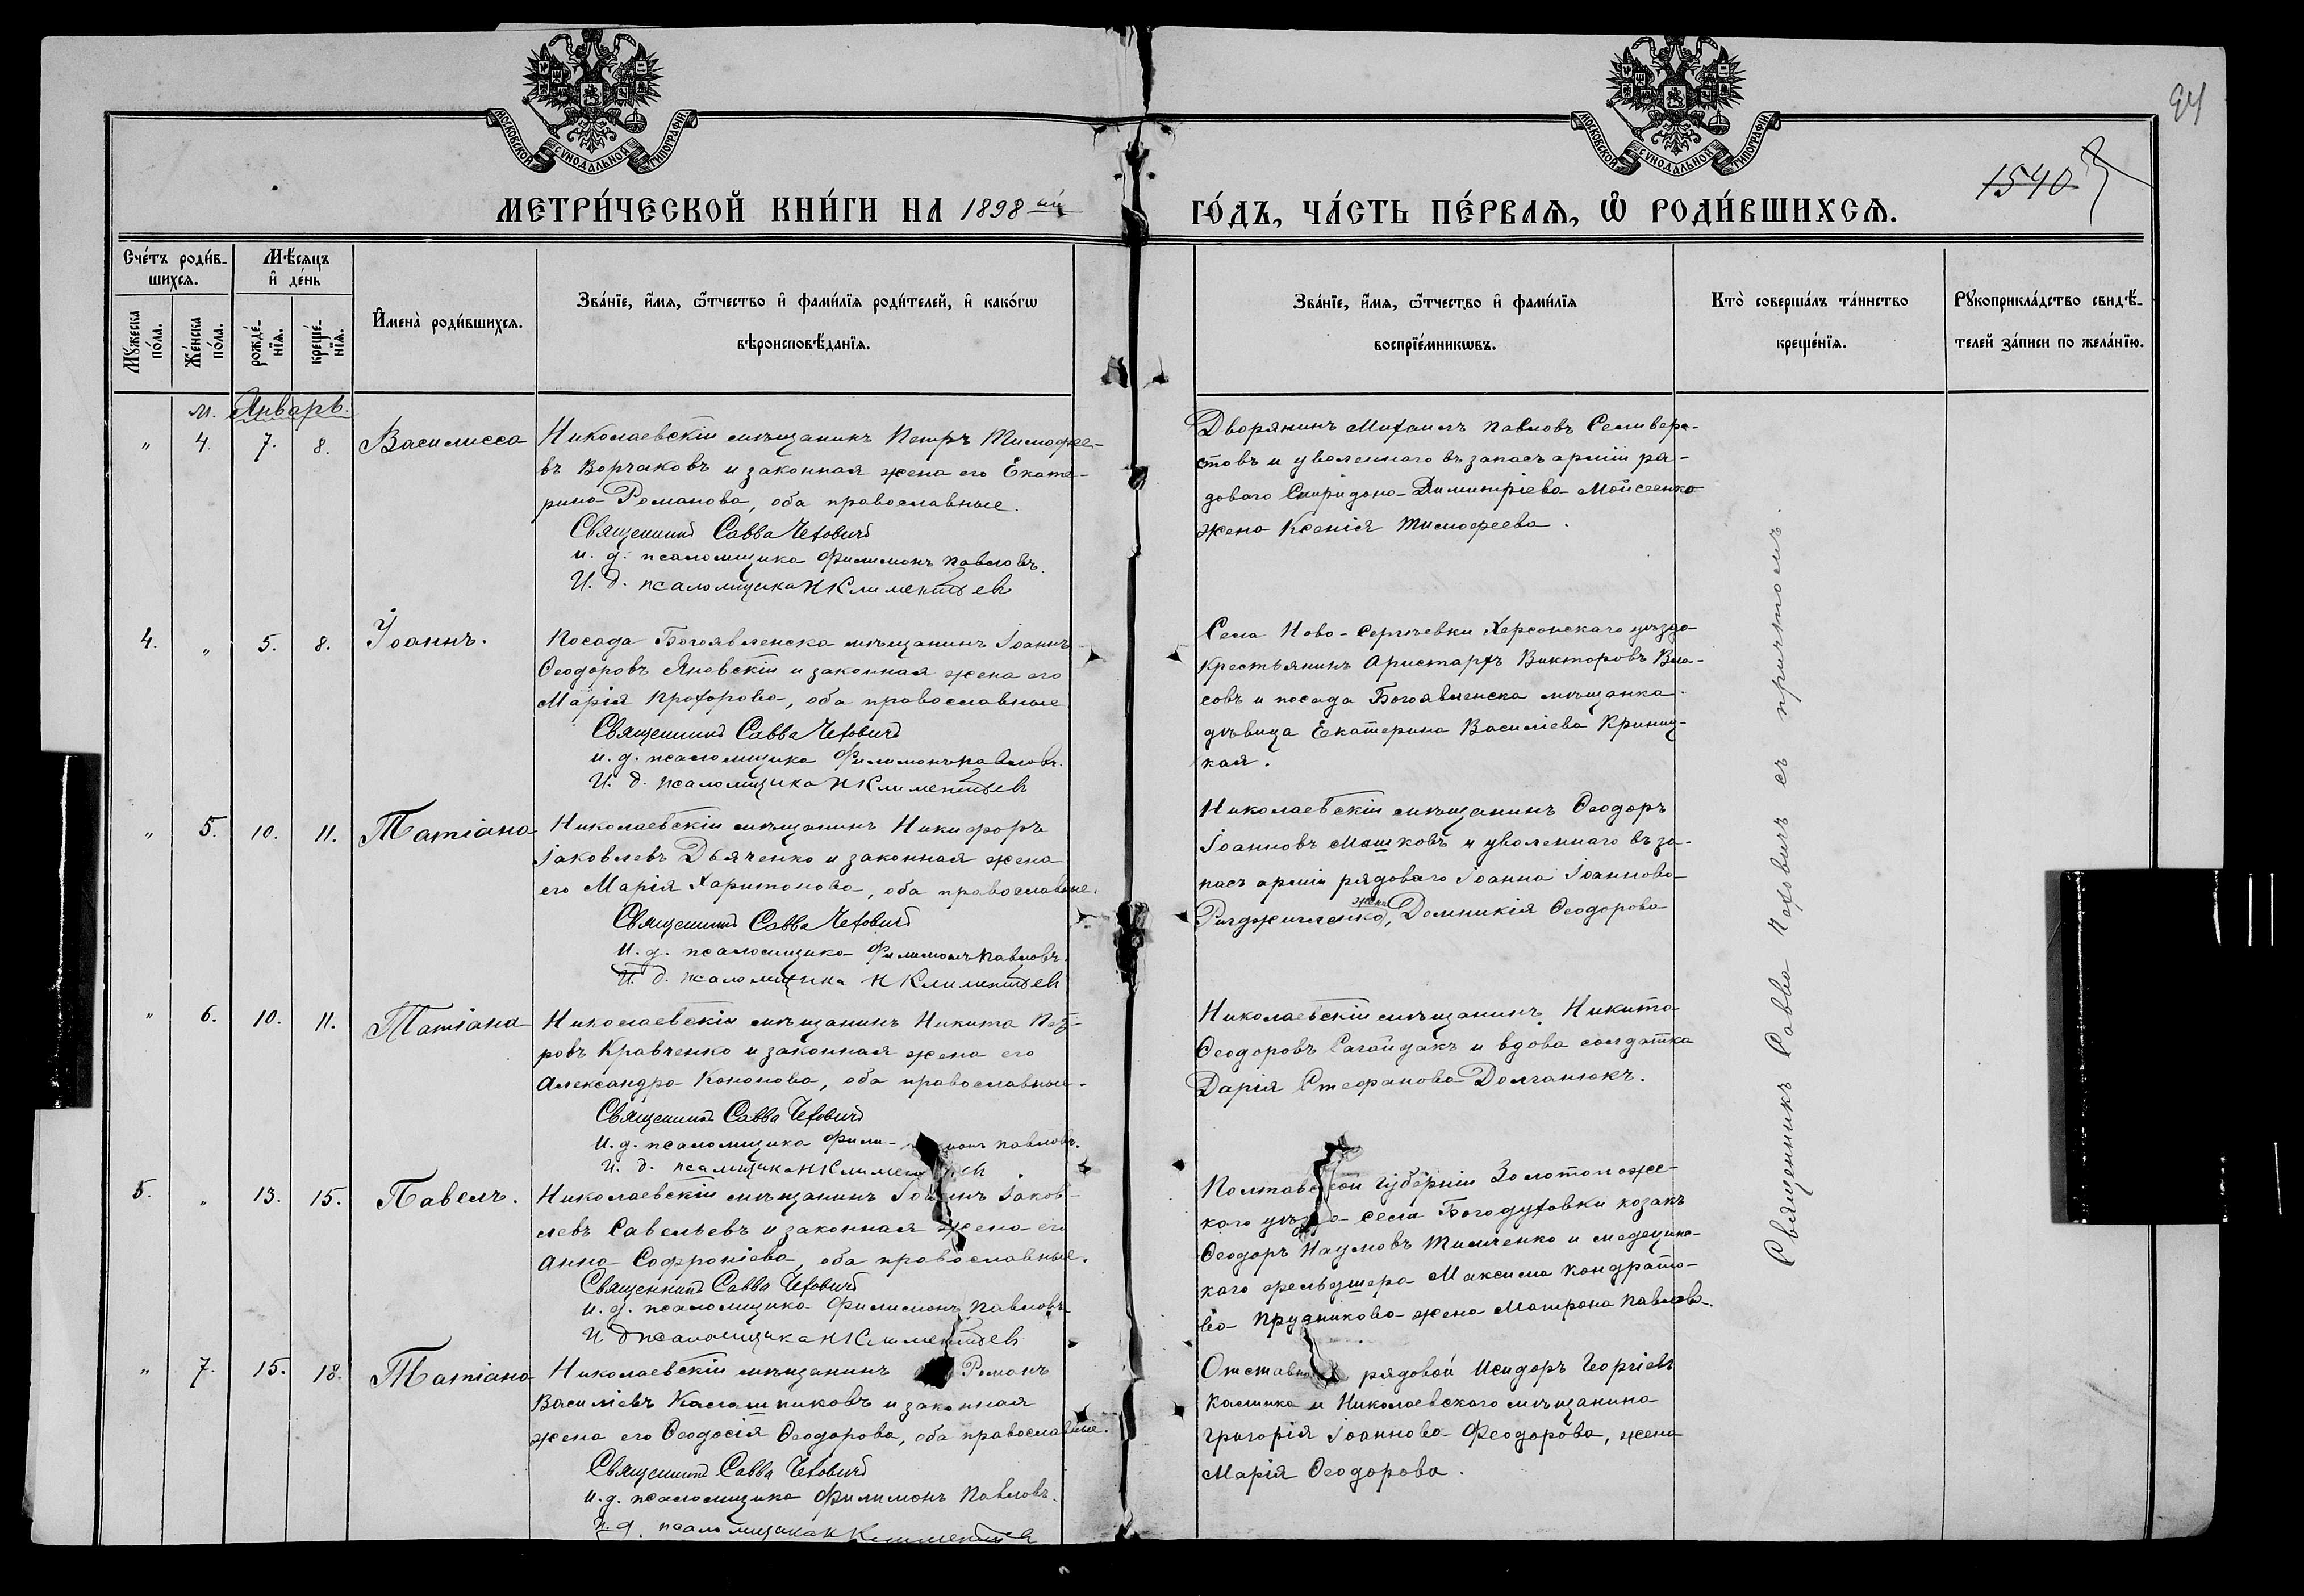 94
1540
МОСКОВСКОЙ СѴНОДАЛЬНОЙ ТИПОГРАФІИ
МОСКОВСКОЙ СѴНОДАЛЬНОЙ ТИПОГРАФІИ
МЕТРИ́ЧЕСКОЙ КНИ́ГИ НА 1898 ый
ГО́ДЪ, ЧА́СТЬ ПЕ́РВАѦ, Ѡ҆ РОДИ́ВШИХСѦ.
Сче́тъ роди́в-
шихсѧ.
Мꙋ́жеска
по́ла.
Же́нска
по́ла.
Мѣ́сѧцъ
и҆ де́нь
рожде́-
нїѧ.
креще́-
нїѧ.
И҆мена̀ роди́вшихсѧ.
Зва́нїе, и҆́мѧ, ѻ҆́тчество и҆ фами́лїѧ роди́телей, и҆ како́гѡ
вѣроисповѣ́данїѧ.
Зва́нїе, и҆́мѧ, ѻ҆́тчество и҆ фами́лїѧ
воспрїе́мникѡвъ.
Кто̀ соверша́лъ та́инство
креще́нїѧ.
Рꙋкоприкла́дство свидѣ́-
телей за́писи по жела́нїю.
м. Январь.
" 4. 7. 8. Василисса
Николаевскій мѣщанинъ Петръ Тимофее-
въ Ворчаковъ и законная жена его Екате-
рина Романова, оба православные.
Священникъ Савва Чехович
и. д. псаломщика Филимонъ Павловъ.
И. д. псаломщика Н Климентьев
Дворянинъ Михаилъ Павловъ Селивер-
стовъ и уволеннаго въ запасъ арміи ря-
доваго Спиридона Димитріева Мойсеенко
жена Ксенія Тимофеева.
4. " 5. 8. Іоаннъ.
Посада Богоявленска мѣщанинъ Іоаннъ
Ѳеодоровъ Яновскій и законная жена его
Марія Прохорова, оба православные.
Священникъ Савва Чехович
и. д. псаломщика Филимонъ Павловъ.
И. д. псаломщика Н Климентьев
Села Ново-Сергѣевки Херсонскаго уѣзда
крестьянинъ Аристархъ Викторовъ Вла-
совъ и посада Богоявленска мѣщанка
дѣвица Екатерина Василіева Криниц-
кая.
" 5. 10. 11. Татіана
Николаевскій мѣщанинъ Никифоръ
Іаковлевъ Дьяченко и законная жена
его Марія Харитонова, оба православные.
Священникъ Савва Чехович
И. д. псаломщика Филимонъ Павловъ.
И. д. псаломщика Н Климентьев
Николаевскій мѣщанинъ Ѳеодоръ
Іоанновъ Машковъ и уволеннаго въ за-
пасъ арміи рядоваго Іоанна Іоаннова
жена
Домникія Ѳеодорова
" 6. 10. 11. Татіана
Николаевскій мѣщанинъ Никита Пет-
ровъ Кравченко и законная жена его
Александра Кононова, оба православные.
Священникъ Савва Чехович
И. д. псаломщика Фили- монъ Павловъ.
И. д. псаломщика Н Климен ев
Николаевскій мѣщанинъ Никита
Ѳеодоровъ Сагайдакъ и вдова солдатка
Дарія Стефанова Долганюкъ.
5. " 13. 15. Павелъ.
Николаевскій мѣщанинъ Іоаннъ Іаков-
левъ Савельевъ и законная жена его
Анна Софроніева, оба православные.
Священникъ Савва Чехович
и. д. псаломщика Филимонъ Павловъ
И д псаломщика Н Климентьев
Полтавской губерніи Золотонож-
каго уѣзда села Богодуховки козакъ
Ѳеодоръ Наумовъ Тимченко и медецинс-
каго фельдшера Максима Кондрато-
ва Прудникова жена Матрона Павлова.
" 7. 15. 18. Татіана
Николаевскій мѣщанинъ Романъ
Василіевъ Калашниковъ и законная
жена его Ѳеодосія Ѳеодорова, оба православные.
Священникъ Савва Чехович
И. д. псаломщика Филимонъ Павловъ.
И. д. псаломщика Н Климентьев
Отставной рядовой Исидоръ Георгіевъ
Калинка и Николаевскаго мѣщанина
Григорія Іоаннова Феодорова, жена
Марія Ѳеодорова.
Священникъ Савва Чеховичъ съ причтомъ.